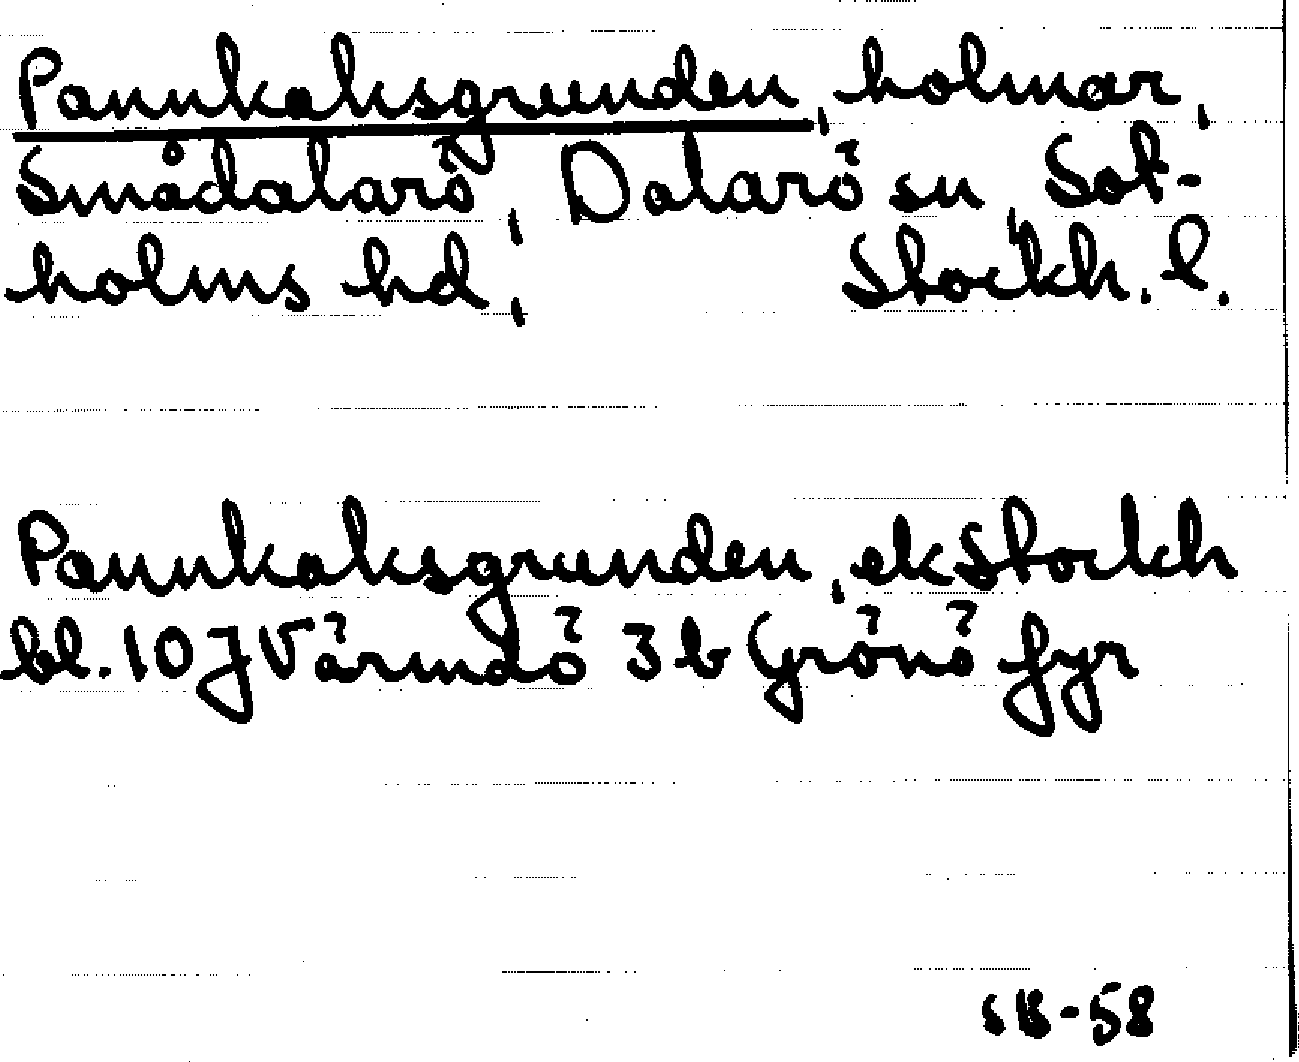 Pannkaksgrunden, holmar,
Smådalarö, Dalarö sn, Sot-
holms hd, Stockh. l.
Pannkaksgrunden, ek Stockh
bl. 10 J Värmdö 3 b Grönö fyr
SB-58